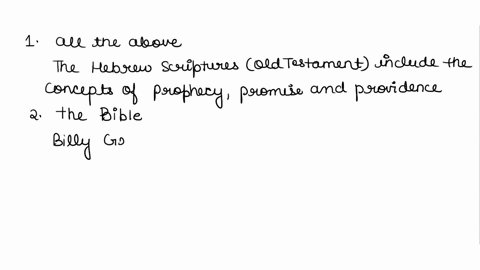 1. all the above
The Hebrew Scriptures (Old Testament) include the
Concepts of prophecy, promise and providence
2. the Bible
Billy